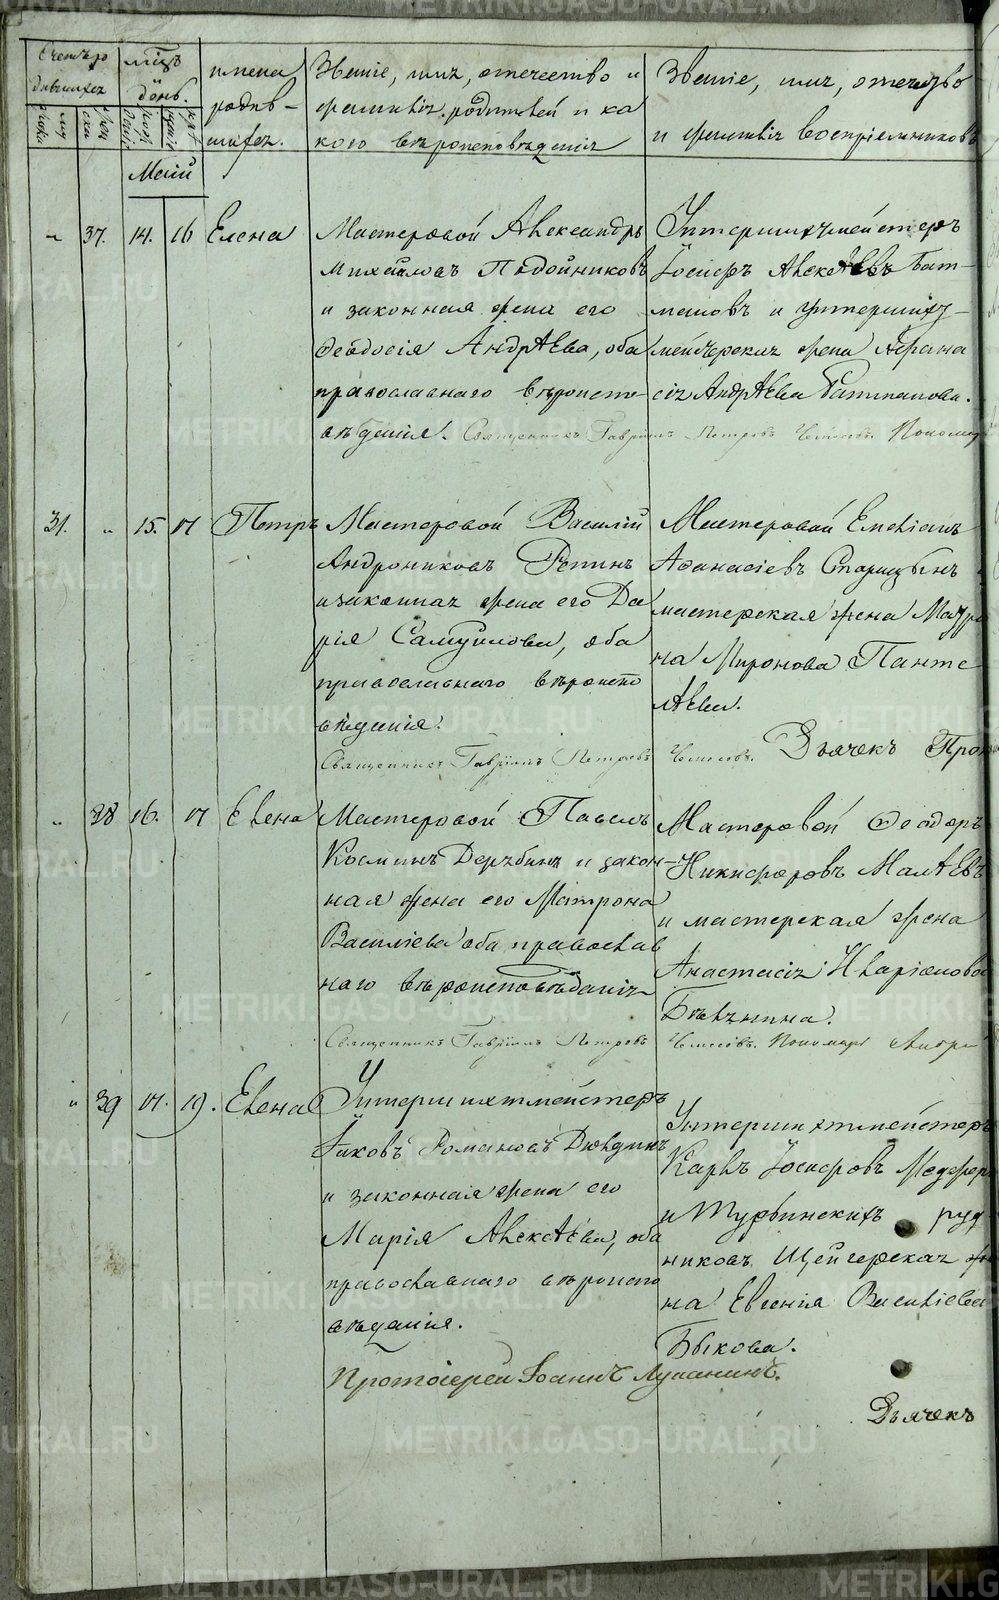 METRIKI.GASO-URAL.RU
Счетъ ро
дившихся
мцъ
день.
имена
родив-
шихся.
Званіе, имя, отечество и
фамилія родителей и ка
кого вѣроисповѣданія
Званіе, имя, отечество
и фамилія воспріемниковъ
Маій
„ 37. 14. 16 Елена
Мастеровой Александръ
Михайловъ Подойниковъ
и законная жена его
Феодосія Андрѣева, оба
православнаго вѣроиспо-
вѣданія. Священникъ Гавріилъ Петровъ
Унтершихтмейстеръ
Іосифъ Алексѣевъ Бат-
мановъ и унтершихт-
мейстерская жена Афана
сія Андрѣева Батманова.
31. „ 15. 17 Петръ
Мастеровой Василій
Андрониковъ Репинъ
и законная жена его Да
рія Самуилова, оба
православнаго вѣроиспо
вѣданія.
Священникъ Гавріилъ Петровъ
Мастеровой Емеліанъ
Афанасіевъ Старицынъ
мастерская жена Мавра
на Миронова Панте
лѣева.
Дьячекъ
„ 38 16. 17 Елена
Мастеровой Павелъ
Косминъ Дерябинъ и закон-
ная жена его Матрона
Василіева оба православ
наго вѣроисповѣданія
Священникъ Гавріилъ Петровъ
Мастеровой Феодоръ
Никифоровъ Малѣевъ
и мастерская жена
Анастасія Иларіонова
Пономарь Андрей
„ 39 17. 19. Елена
Унтершихтмейстеръ
Іаковъ Романовъ
и законная жена его
Марія Алексѣева, оба
православнаго вѣроиспо
вѣданія.
Протоіерей Іоаннъ
Унтершихтмейстеръ
Карлъ Іосифовъ
и Турьинскихъ руд-
никовъ Шейгерская же
на Евгенія Василіева
Быкова.
Дьячекъ